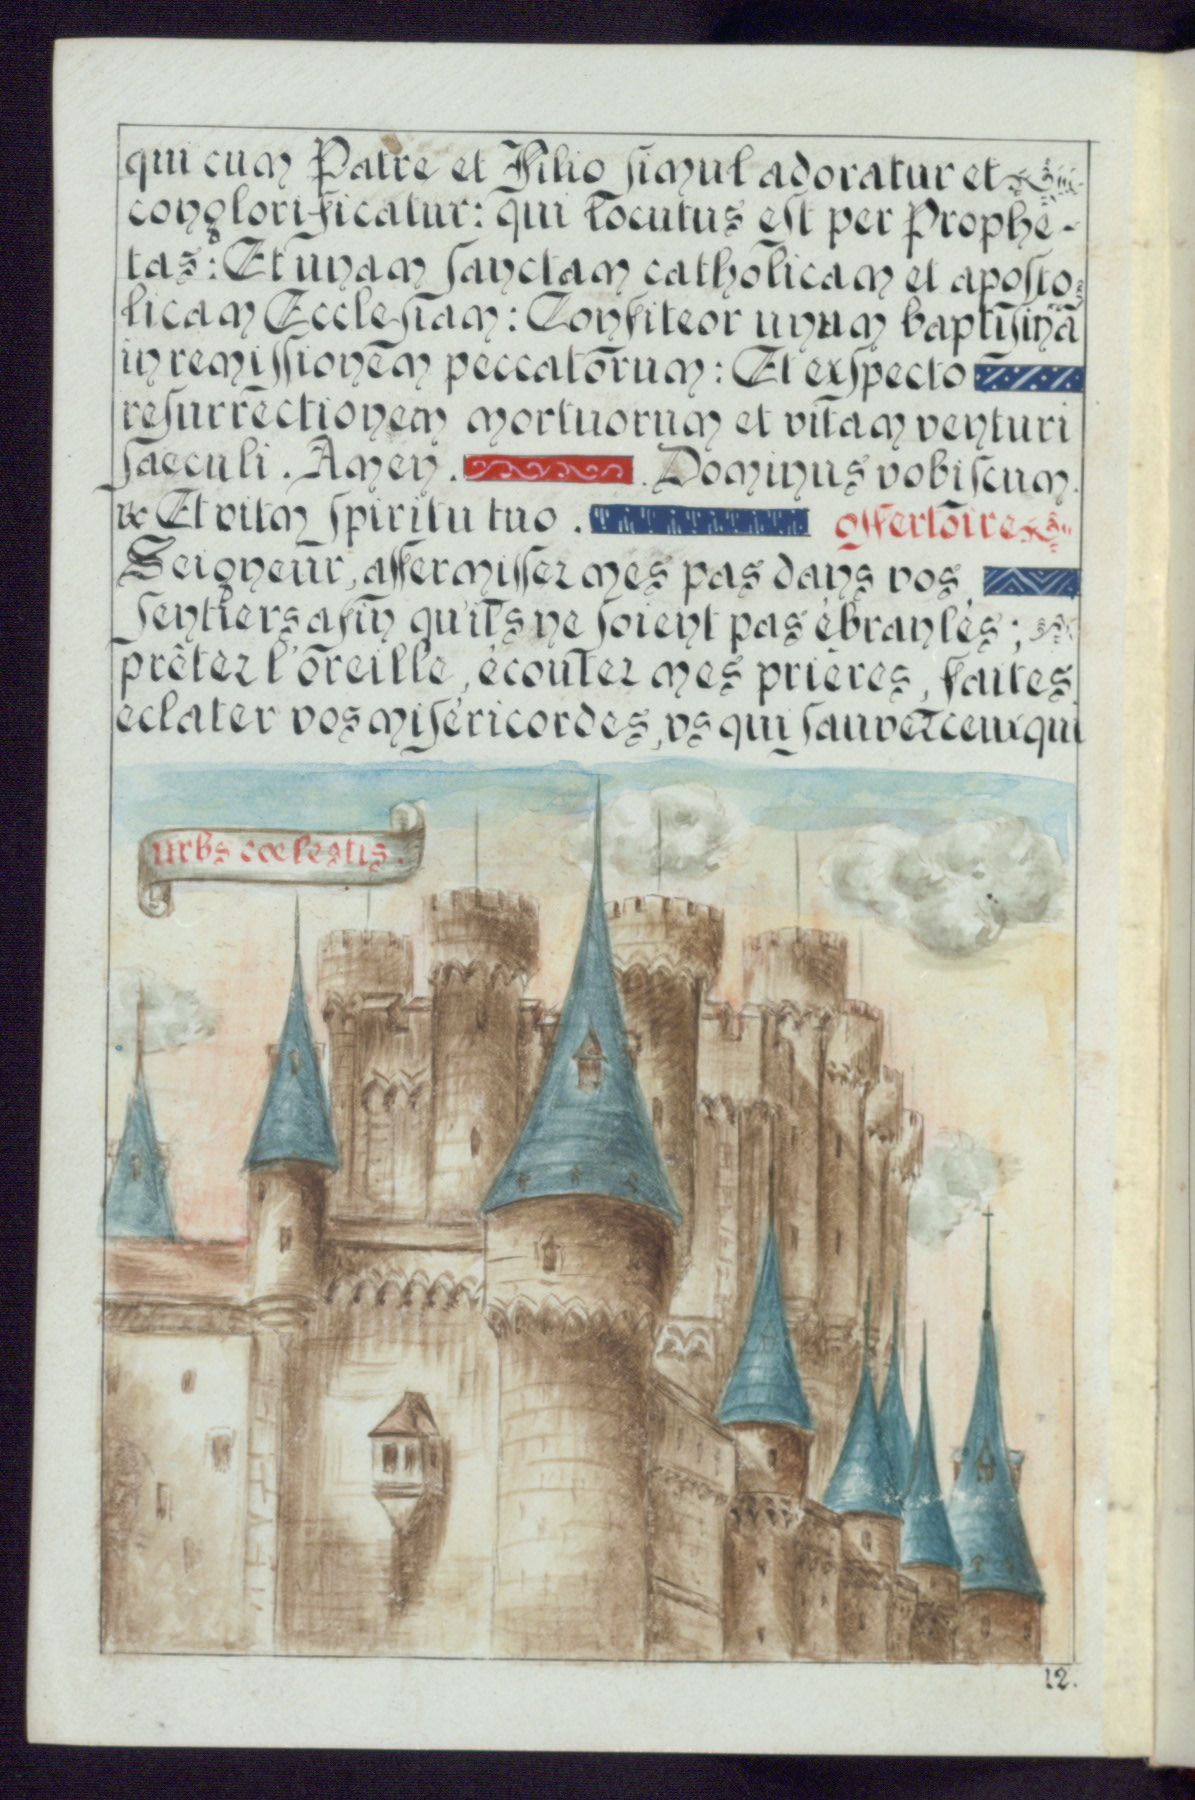 qui cum Patre et Filio simul adoratur et
conglorificatur: qui locutus est per Prophe-
tas: Et unam sanctam catholicam et aposto
licam Ecclesiam: Confiteor unum baptismā
in remissionem peccatorum: Et expecto
resurrectionem mortuorum et vitam venturi
saeculi. Amen. Dominus vobiscum.
& Et vitm spiritu tuo. offertoire
Seigneur, affermissez mes pas dans vos
sentiers afin qu'ils ne soient pas ébranlés;
prêtez l'oreille, écoutez mes prières, faites
eclater vos miséricordes, vs qui sauvez ceux qui
urbs coelestis.
12.